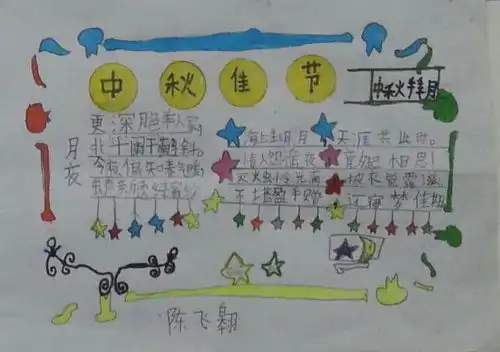 中秋佳节
中秋拜月
月夜
更深月色半人家,
北斗阑干南斗斜。
今夜偏知春气暖,
虫声新透绿窗纱
海上生明月,天涯共此时。
情人怨遥夜,竟夕起相思!
灭烛 光满 披衣觉露滋
不堪盈手赠 还寝梦佳期
陈飞翱